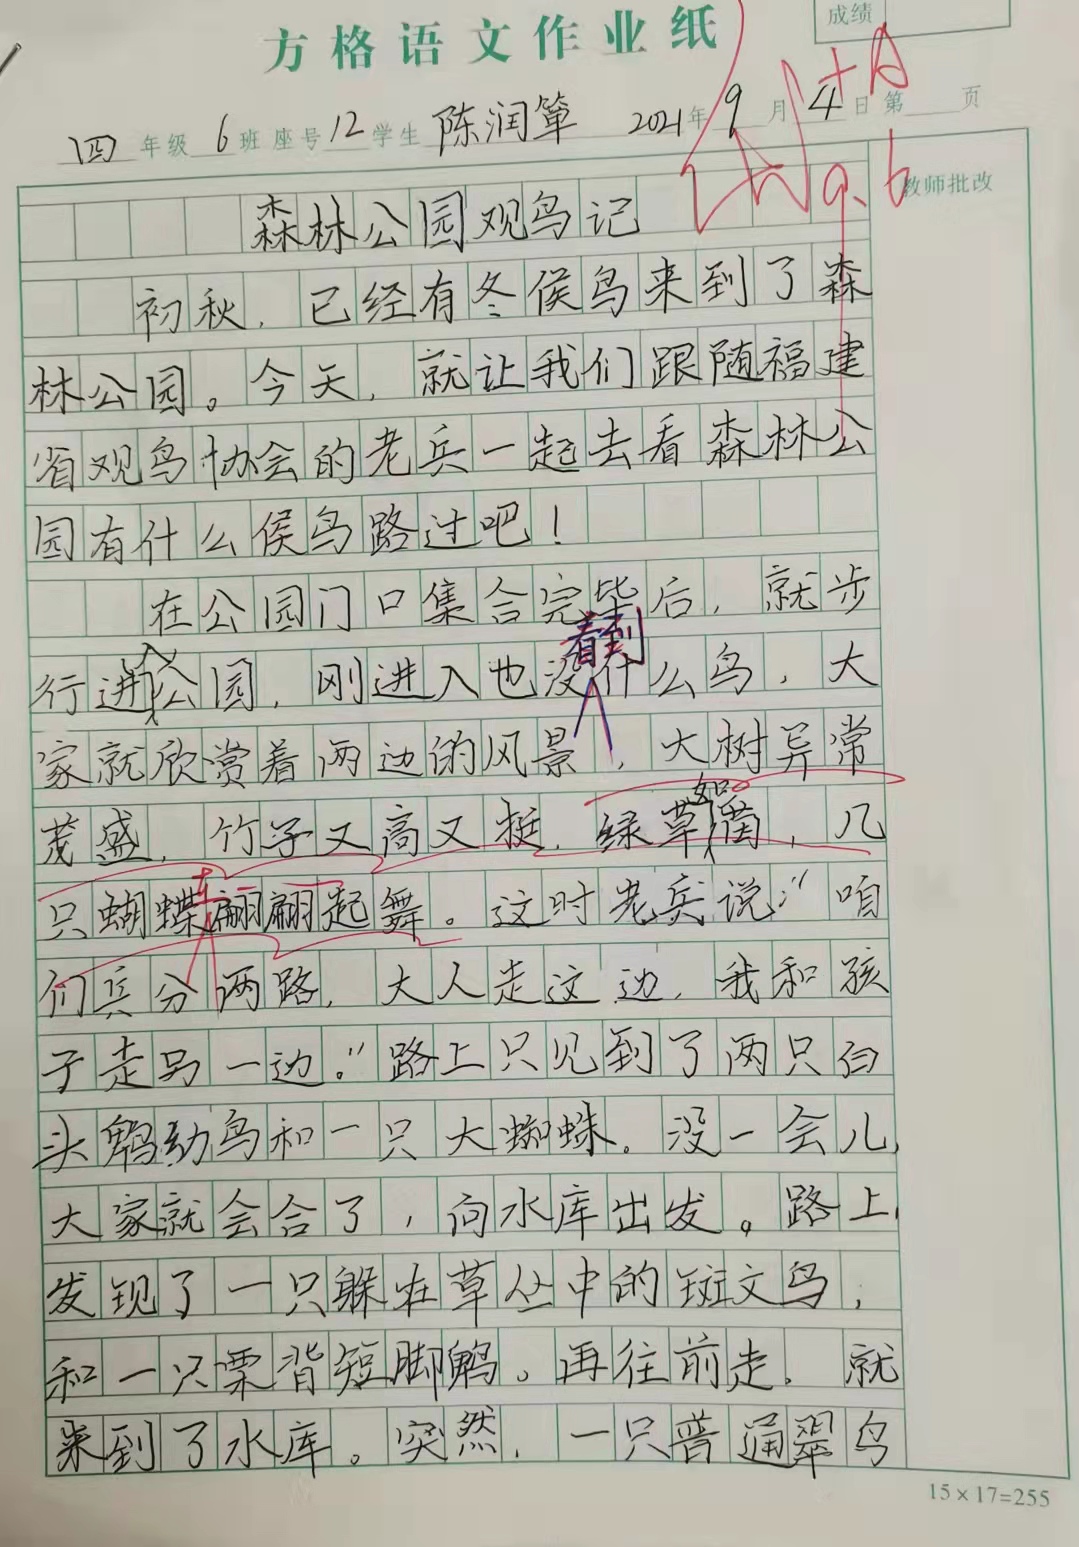 方格语文作业纸
成绩
优+A
四年级6班座号12学生陈润箪 2021年9月4日第 页
9.6
教师批改
森林公园观鸟记
初秋，已经有冬侯鸟来到了森
林公园。今天，就让我们跟随福建
省观鸟协会的老兵一起去看森林公
园有什么侯鸟路过吧！
在公园门口集合完毕后，就步
行进入公园，刚进入也没看到什么鸟，大
家就欣赏着两边的风景，大树异常
茂盛，竹子又高又挺，绿草如茵，几
只蝴蝶在翩翩起舞。这时老兵说：“咱
们兵分两路，大人走这边，我和孩
子走另一边。”路上只见到了两只白
头鹎幼鸟和一只大蜘蛛。没一会儿，
大家就会合了，向水库出发。路上，
发现了一只躲在草丛中的斑文鸟，
和一只栗背短脚鹎。再往前走，就
来到了水库。突然，一只普通翠鸟
15×17=255